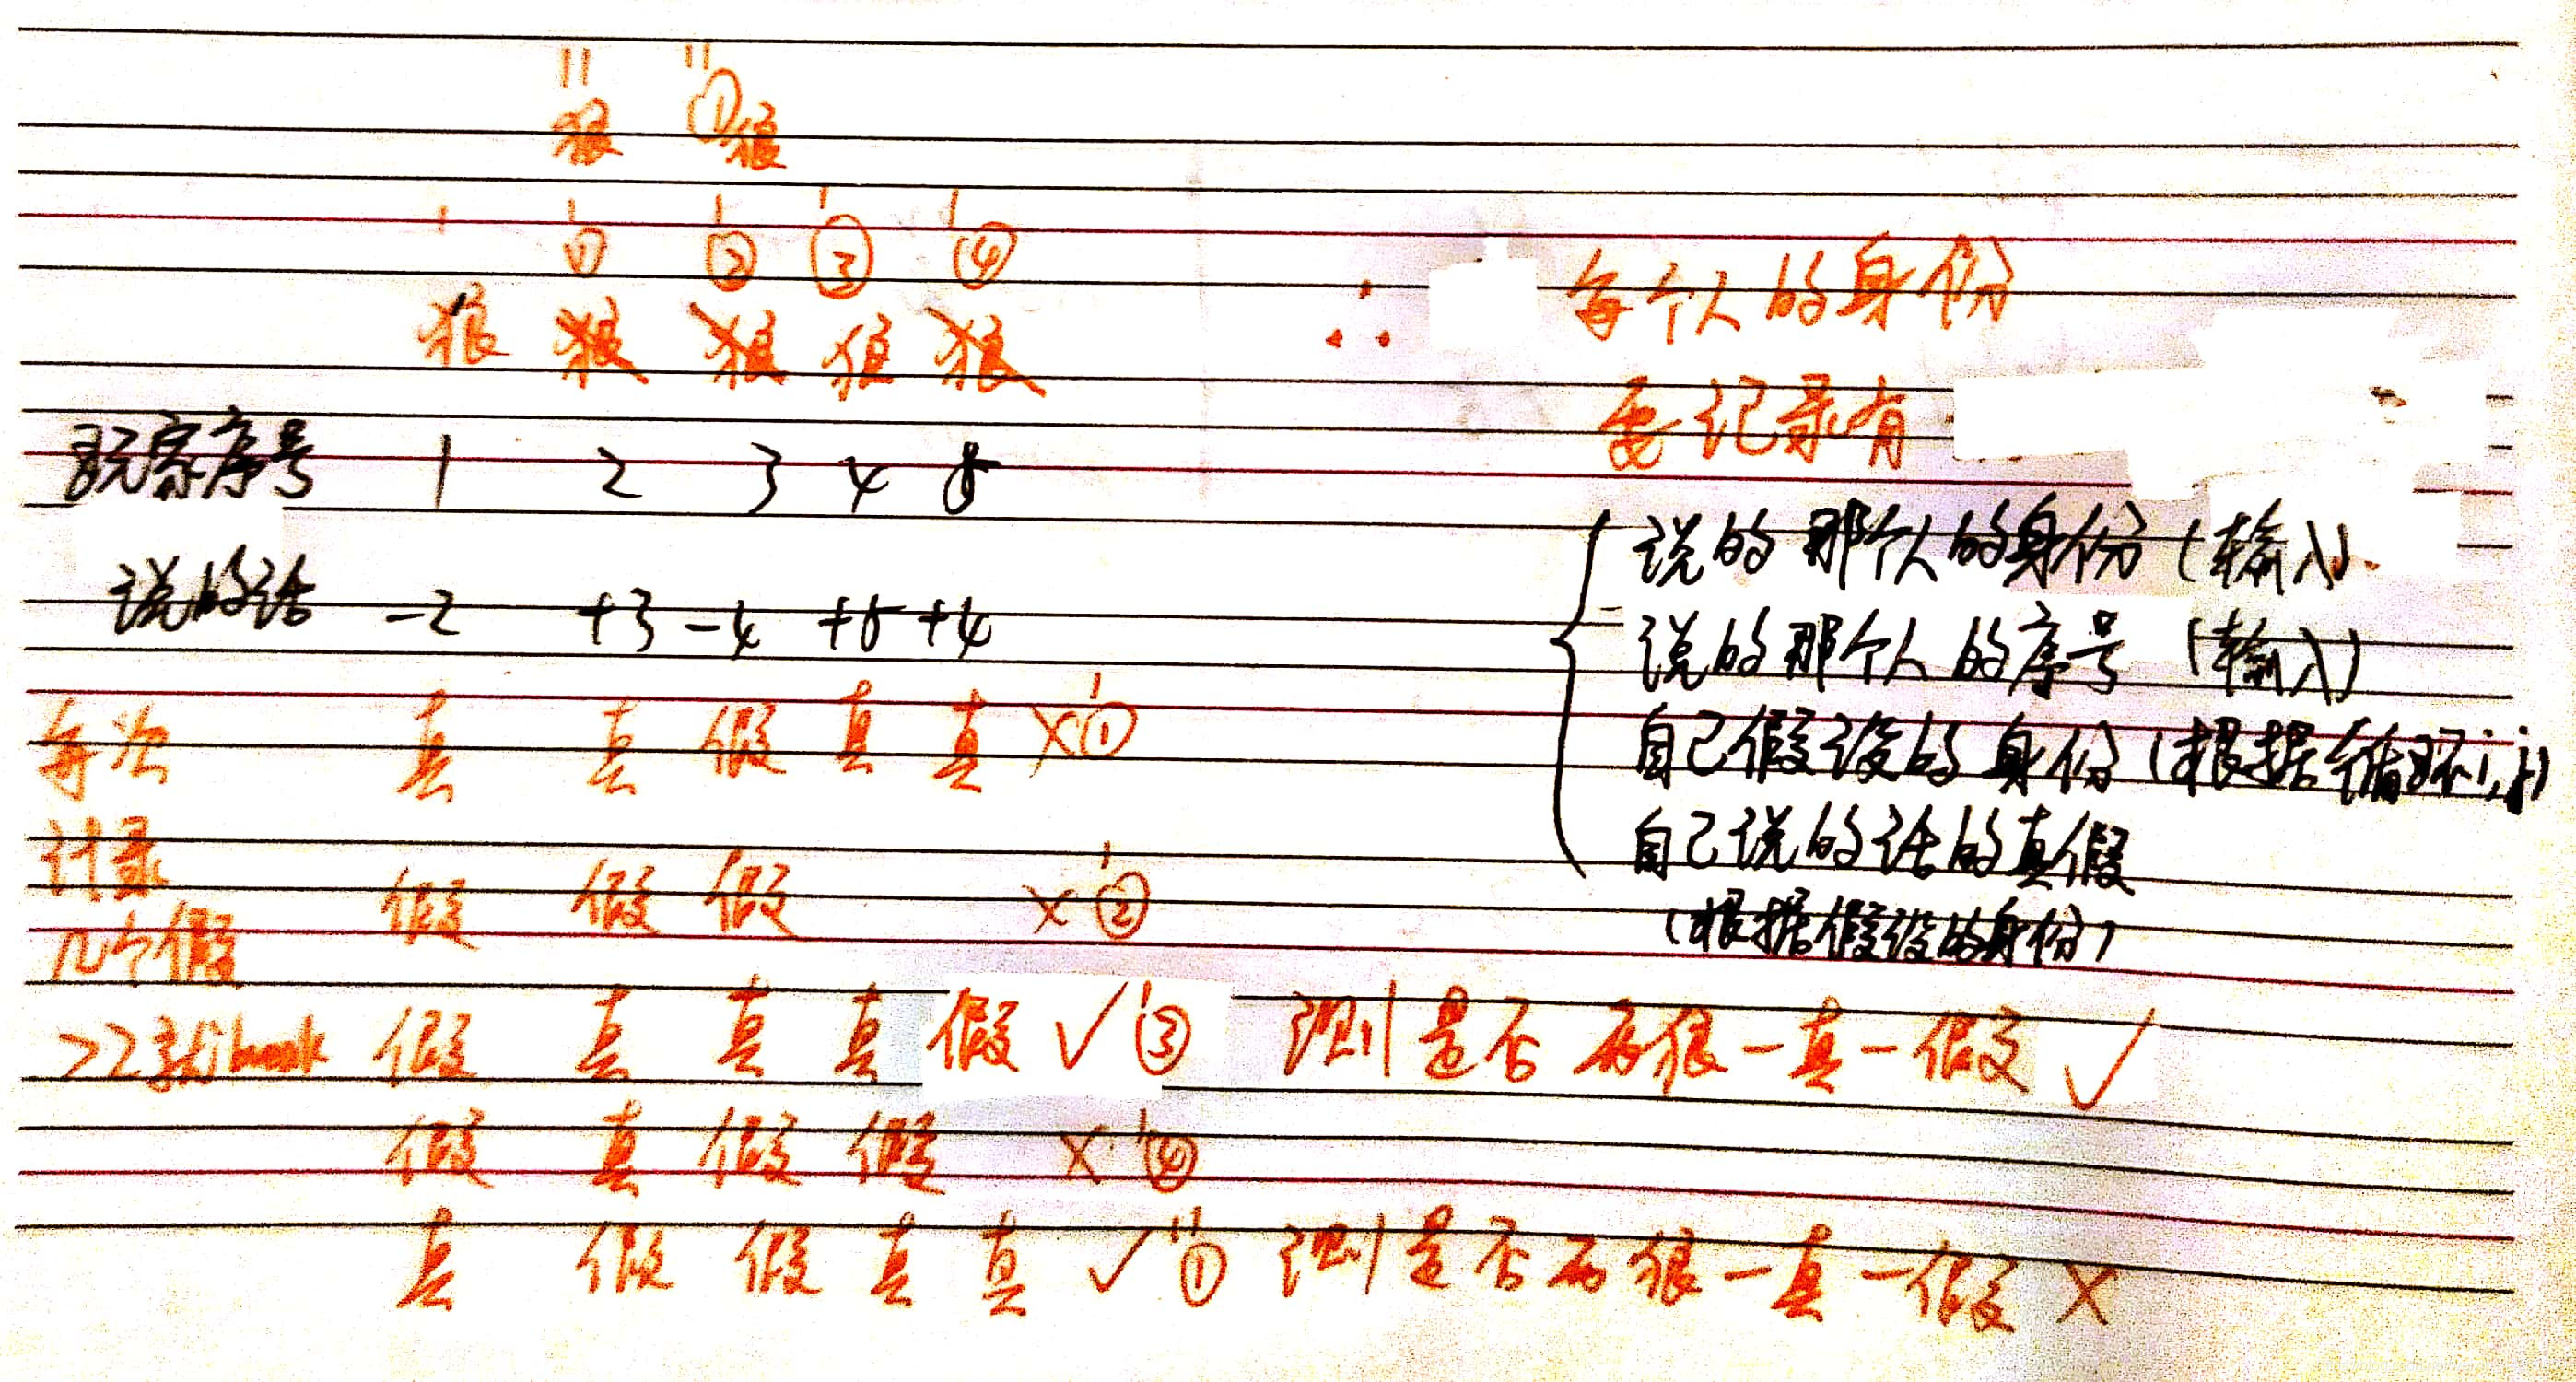 " "
狼 ①狼
' ' ' ' '
① ② ③ ④
狼 狼 狼 狼 狼
∴ 每个人的身份
要记录有
玩家序号 1 2 3 4 5
说的话 -2 +3 -4 +5 +4
说的那个人的身份(输入)
说的那个人的序号(输入)
自己假设的身份(根据循环i,j)
自己说的话的真假
(根据假设的身份)
每次 真 真 假 真 真 ×'①
计录
几个假 假 假 假 ×'②
>2就break 假 真 真 真 假 ✓'③ 测是否两狼一真一假 ✓
假 真 假 假 ×'④
真 假 假 真 真 ✓"① 测是否两狼一真一假 ×